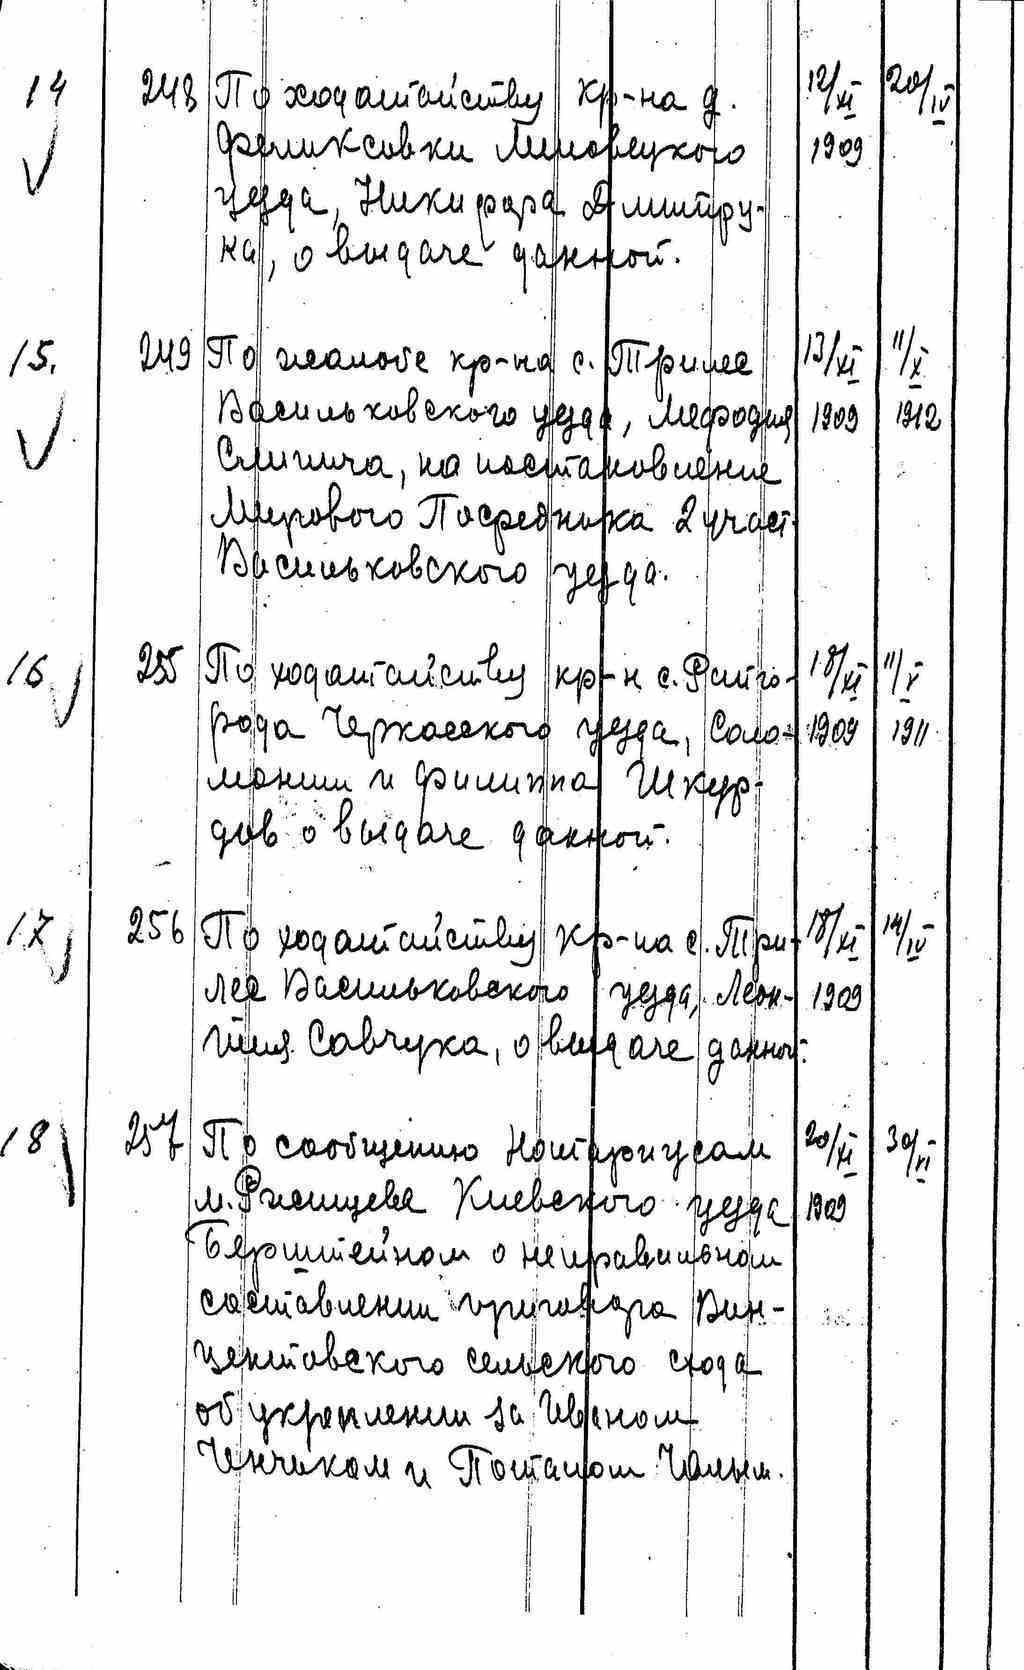 14 243 По ходатайству кр-на д. 12/XI 20/IV
Феликсовки Липовецкого 1909
уезда, Никифора Дмитру-
ка, о выдаче данной.
15. 249 По жалобе кр-на с. Трилес 13/XI 11/X
Васильковского уезда, Мефодия 1909 1912
на постановление
Мирового Посредника 2 участ.
Васильковского уезда.
16 255 По ходатайству кр-н с. Райго- 18/XI 11/V
рода Черкасского уезда, Соло- 1909 1911
монии и Филиппа Шкур-
дов о выдаче данной.
17 256 По ходатайству кр-на с. Три- 18/XI 14/IV
лес Васильковского уезда, Леон- 1909
тия Савчука, о выдаче данной.
18 257 По сообщению Нотариусом 20/XI 30/VI
м. Ржищева Киевского уезда 1909
Бернштейном о неправильном
составлении приговора Вин-
центовского сельского схода
об укреплении за Иваном
Ченчиком и Потапом Чалым.